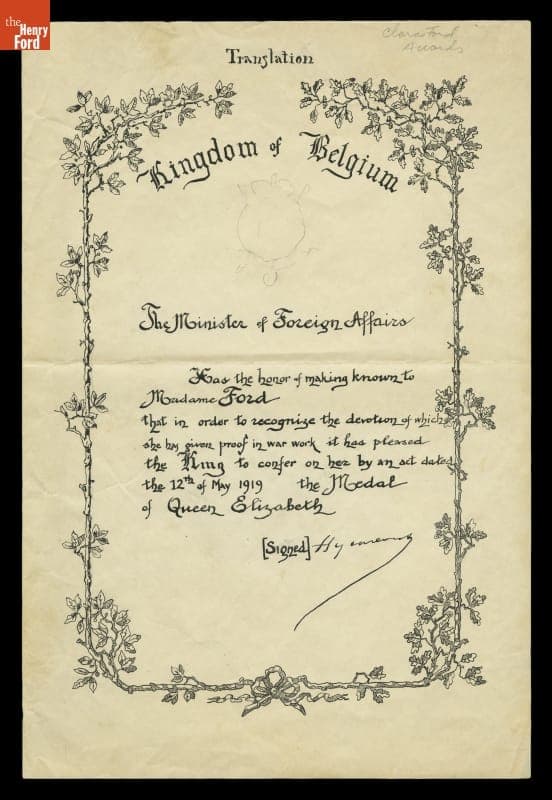 the
Henry
Ford
Clara Ford
Awards
Translation
Kingdom of Belgium
The Minister of Foreign Affairs
Has the honor of making known to
Madame Ford
that in order to recognize the devotion of which
she has given proof in war work it has pleased
the King to confer on her by an act dated
the 12th of May 1919 the Medal
of Queen Elizabeth
[Signed] Hymans